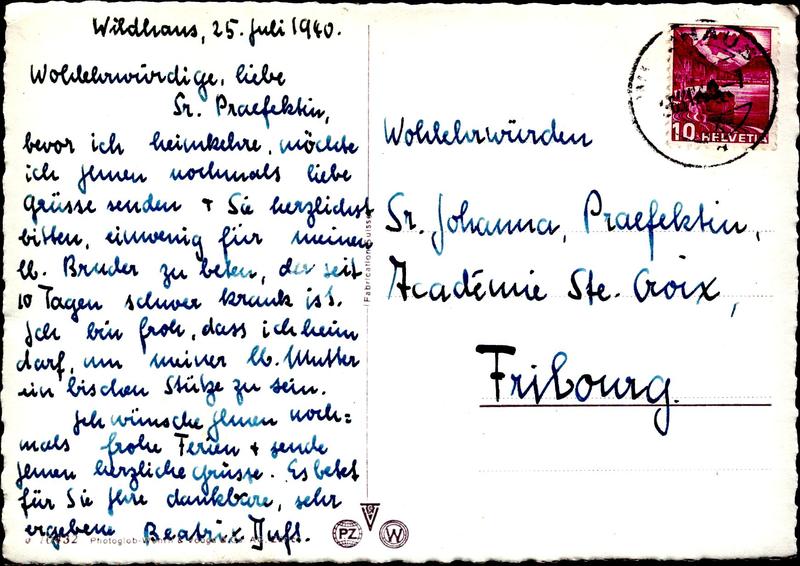 Wildhaus, 25. Juli 1940.
Wohlehrwürdige, liebe
Sr. Praefektin,
bevor ich heimkehre, möchte
ich Jhnen nochmals liebe
Grüsse senden + Sie herzlichst
bitten, einwenig für meinen
lb. Bruder zu beten, der seit
10 Tagen schwer krank ist.
Jch bin froh, dass ich heim
darf, um meiner lb. Mutter
ein bischen Stütze zu sein.
Jch wünsche Jhnen noch=
mals frohe Ferien + sende
Jhnen herzliche Grüsse. Es betet
für Sie Jhre dankbare, sehr
ergebene Beatrix
Photoglob-
Fabrication suisse
PZ
W
Wohlehrwürden
Sr. Johanna, Praefektin,
Académie Ste. Croix,
Fribourg.
10 HELVETIA